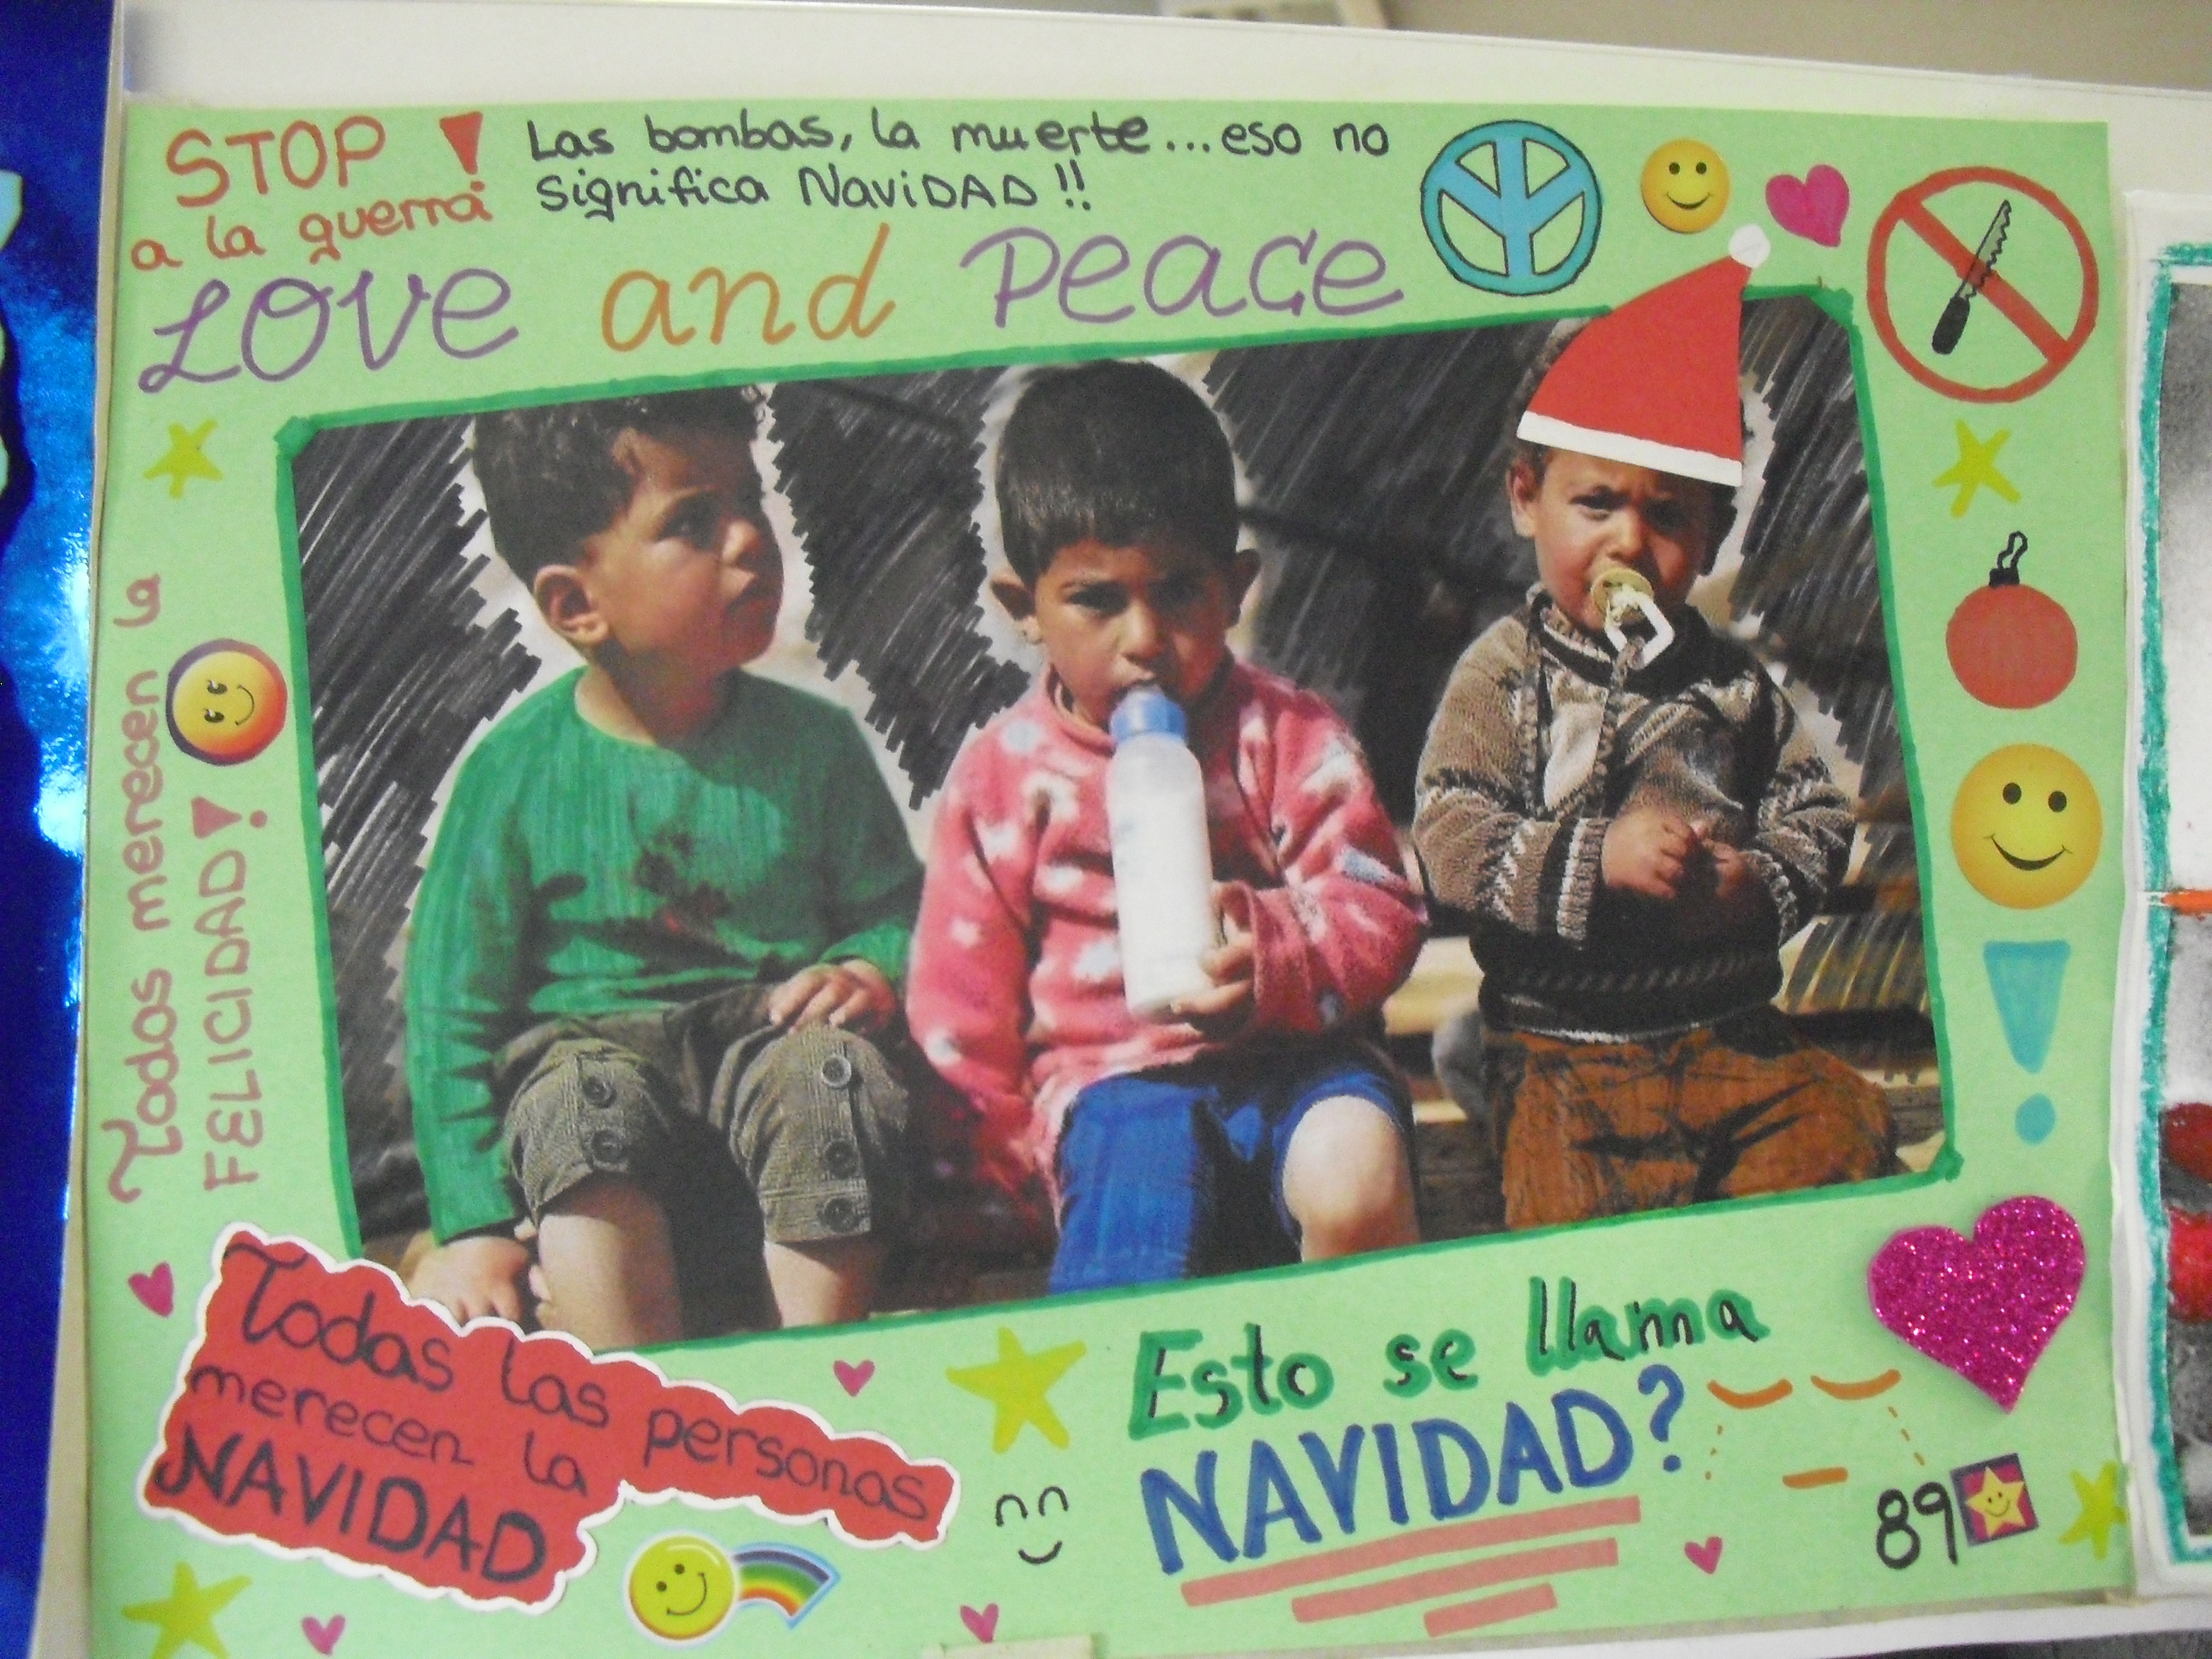 STOP !
a la guerra
Las bombas, la muerte...eso no
significa NaviDAD!!
LOVE and PEACE
Todos merecen la
FELICIDAD!
Todas las personas
merecen la
NAVIDAD
Esto se llama
NAVIDAD?
89